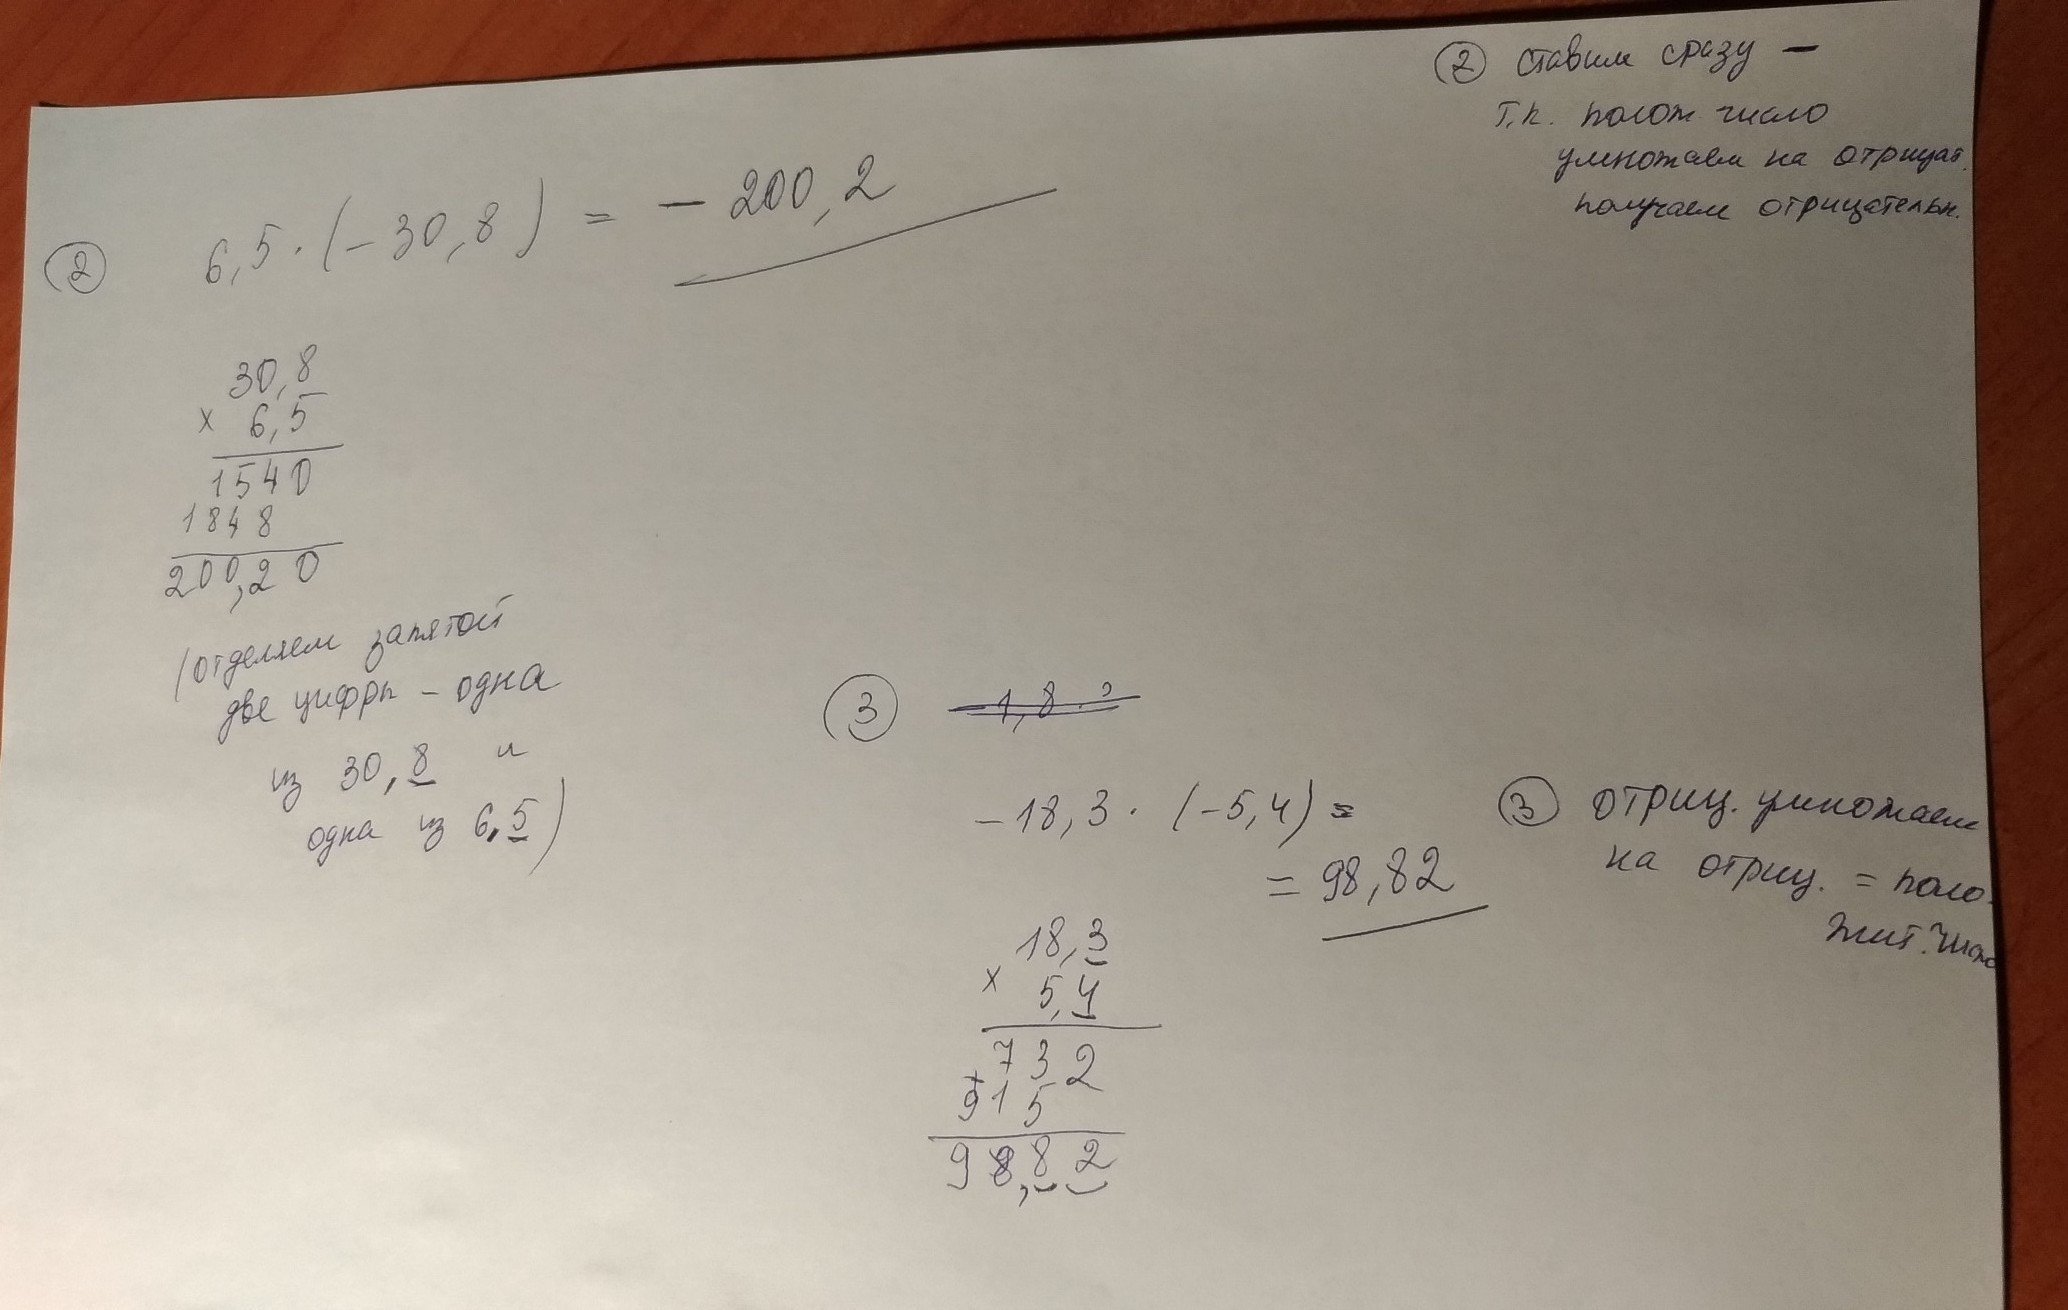 ② ставим сразу —
т.к. полож. число
умножаем на отрицат.
получаем отрицательн.
② 6,5 · (-30,8) = - 200,2
30,8
х 6,5
1540
1848
200,20
(отделяем запятой
две цифры - одна
из 30,8 и
одна из 6,5)
③ -1,8 ·
-18,3 · (-5,4) =
= 98,82
③ отриц. умножаем
на отриц. = поло-
жит. число
18,3
х 5,4
732
+
915
98,82